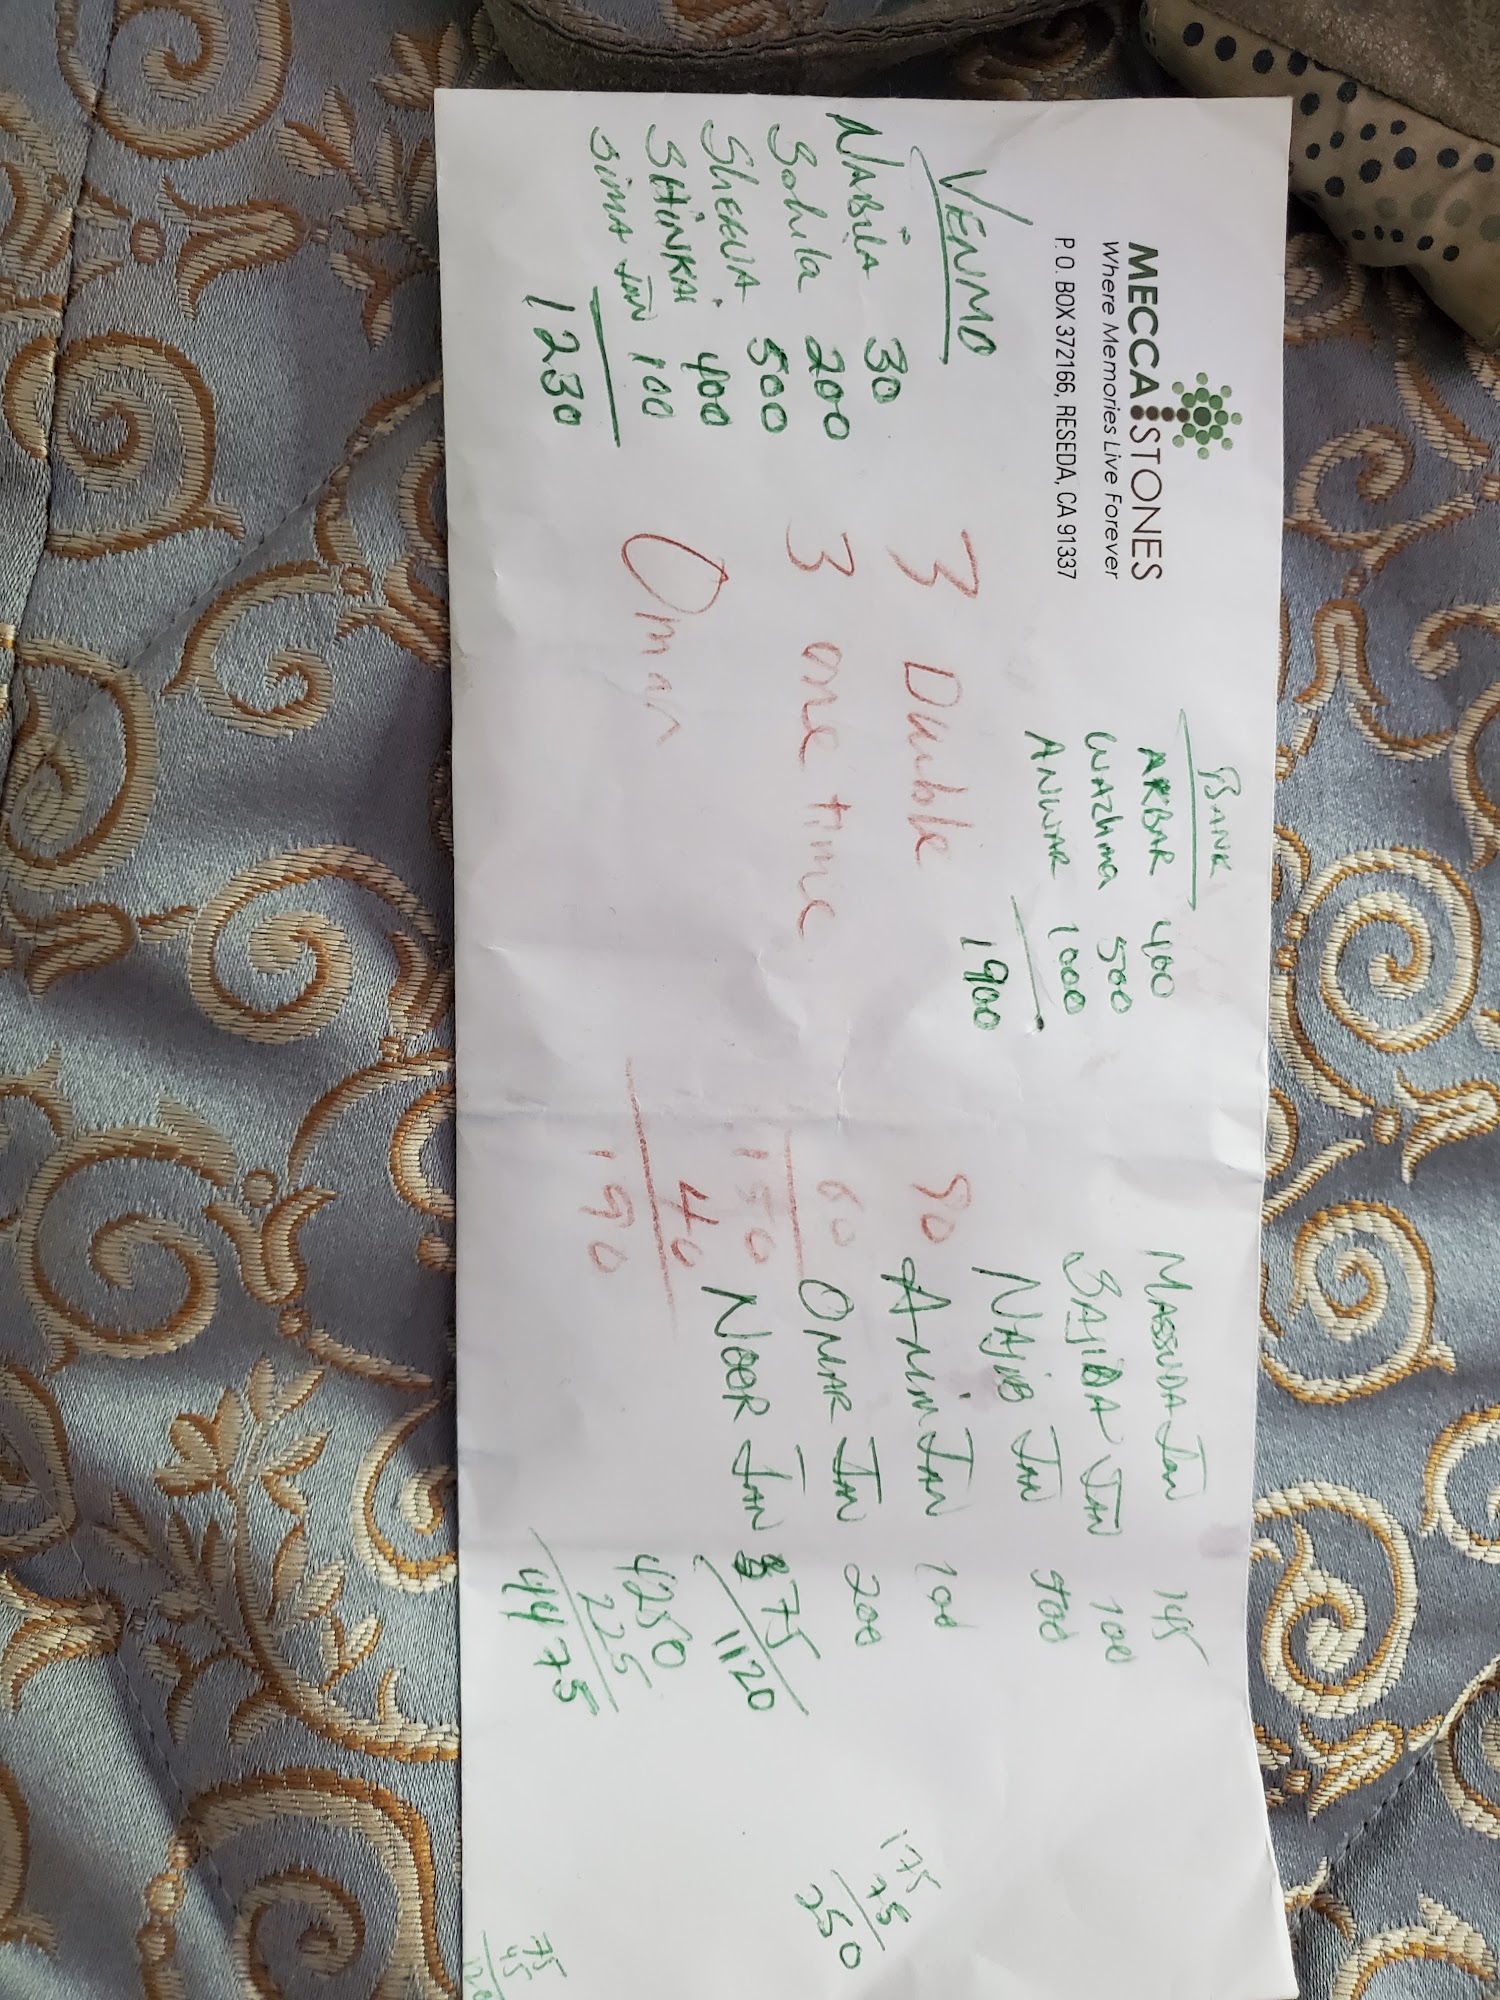 MECCA STONES
Where Memories Live Forever
P.O. BOX 372166, RESEDA, CA 91337
VENMO
NABILA 30
Sohila 200
SHEEWA 500
SHINKAI 400
SIMA JAN 100
1230
BANK
AKBAR 400
WAZhma 500
ANWAR 1000
1900
3 Double 90
3 one time 60
150
Oman 40
190
MASSUDA JAN 145
SAJIDA JAN 100
NAJIB JAN 500
AMIN JAN 100
OMAR JAN 200
NOOR JAN 75
1120
4250
225
4475
175
75
250
75
45
120